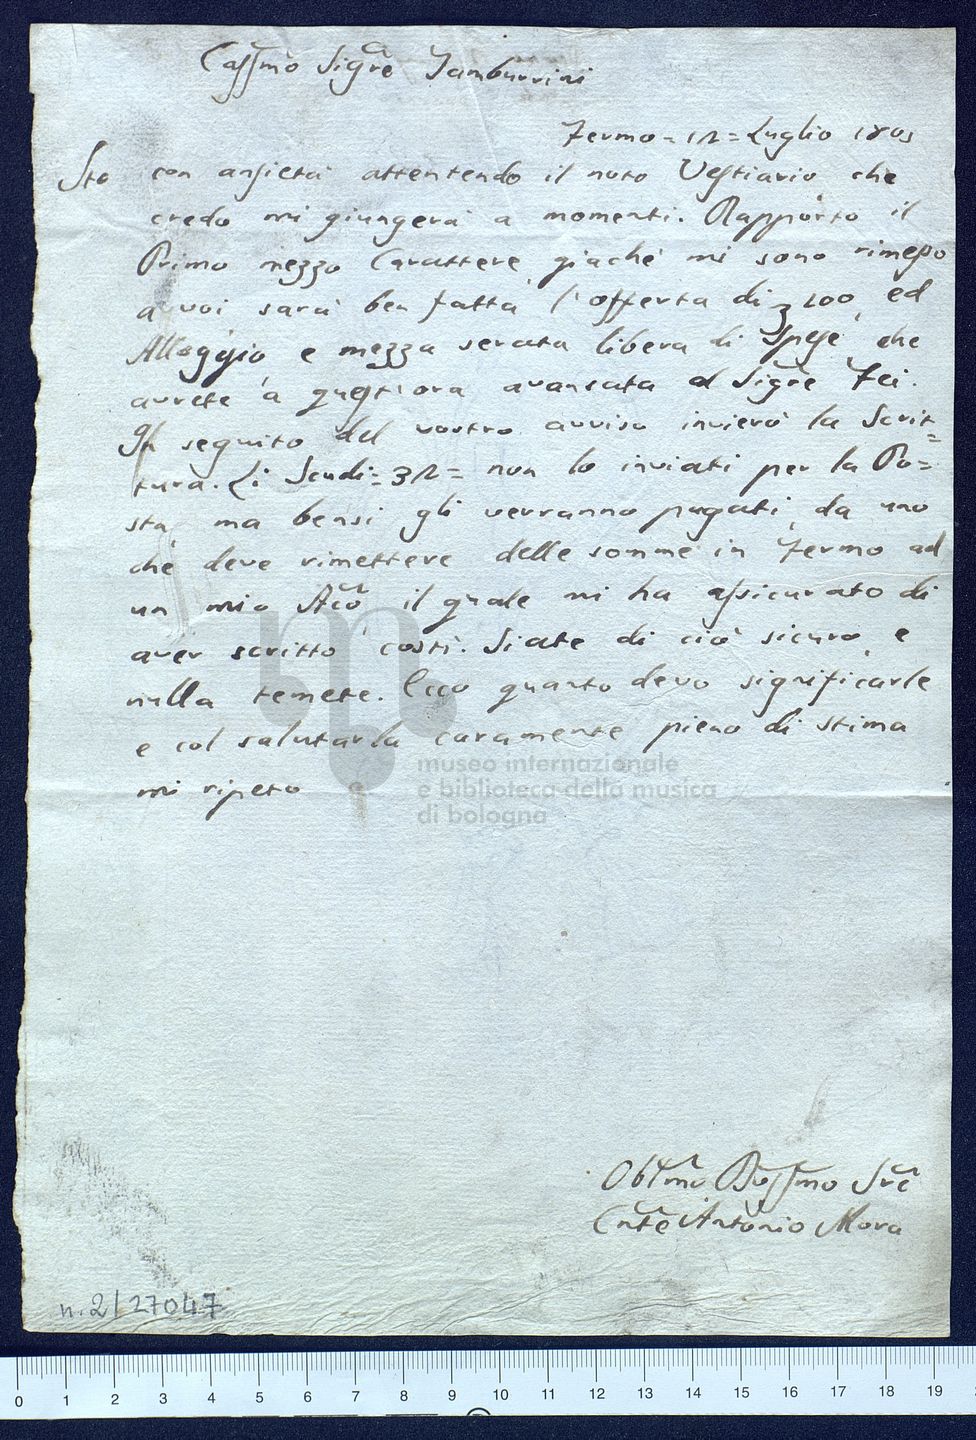 Casſmo Sigre Tamburrini
Fermo = 12 = Luglio 1803
Sto con ansietà attentendo il noto Vestiario, che
credo mi giungerà a momenti. Rapporto il
Primo mezzo Carattere, giachè mi sono rimesso
a voi sarà ben fatta l'offerta di 100, ed
Alloggio e mezza serata libera di Spese, che
avrete a quest'ora avansata al Sigre Fei.
In seguito del vostro avviso invierò la Scrit=
tura. Li Scudi = 32 = non lo inviati per la Po=
sta, ma bensi gli verranno pagati da uno
che deve rimettere delle somme in Fermo ad
un mio Aco il quale mi ha assicurato di
aver scritto costì. Siate di ciò sicuro, e
nulla temete. Ecco quanto devo significarle
e col salutarla caramente pieno di stima
mi ripeto
museo internazionale
e biblioteca della musica
di bologna
Obbmo Sre
Cnte Antonio Mora
n. 2/27047
0 1 2 3 4 5 6 7 8 9 10 11 12 13 14 15 16 17 18 19